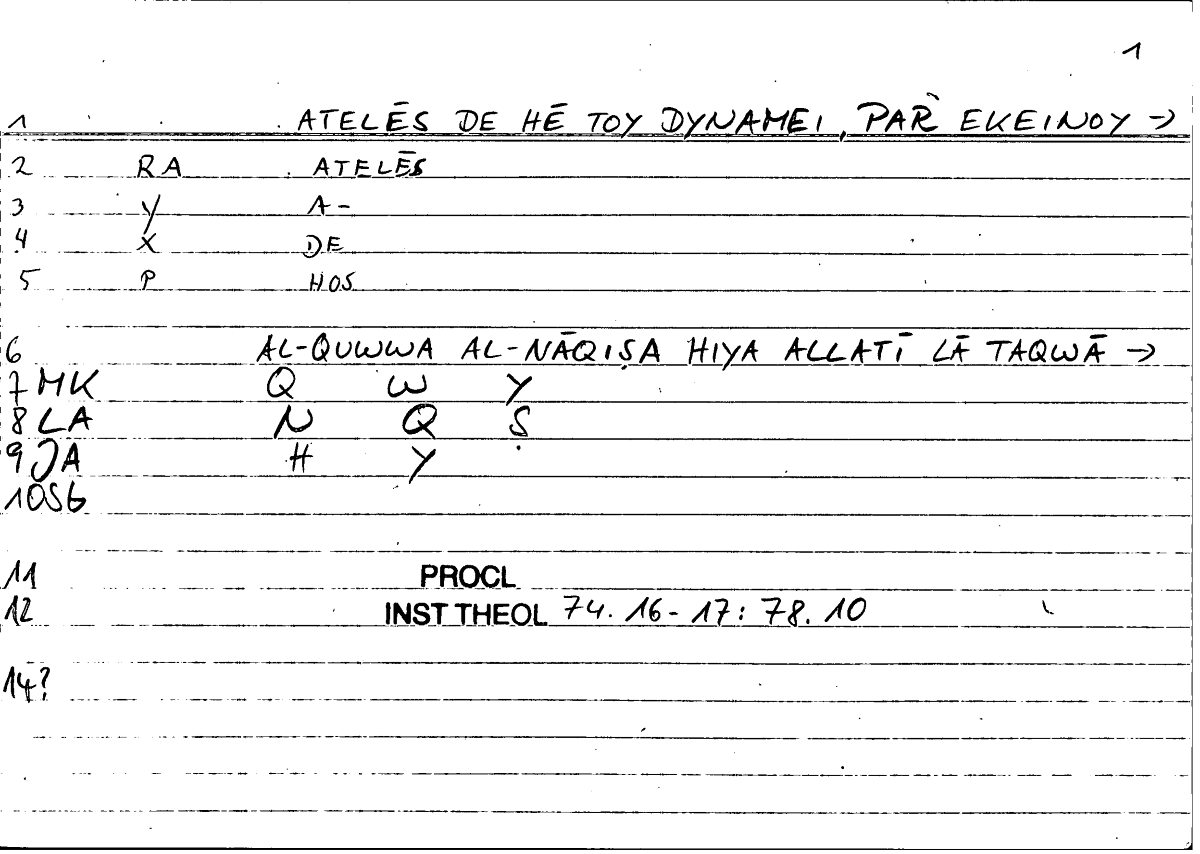 1
1 ATELĒS DE HĒ TOY DYNAMEI, PAR̀ EKEINOY →
2 RA ATELĒS
3 Y A-
4 X DE
5 P HOS
6 AL-QUWWA AL-NĀQIṢA HIYA ALLATĪ LĀ TAQWĀ →
7 MK Q W Y
8 LA N Q Ṣ
9 JA H Y
10 SG
11 PROCL
12 INST THEOL 74. 16-17: 78. 10
14?